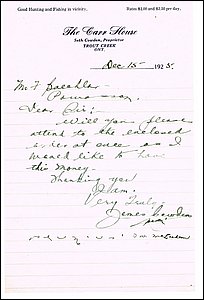 Good Hunting and Fishing in vicinity.
Rates $2.00 and $2.50 per day.
The Carr House
Seth Cowden, Proprietor
TROUT CREEK
ONT.
Dec 15 1925
Mr F
Dear Sir:
Will you please
attend to the enclosed
at once as I
would like to have
this money.
Thanking you
I am.
Very Truly
James Cowden